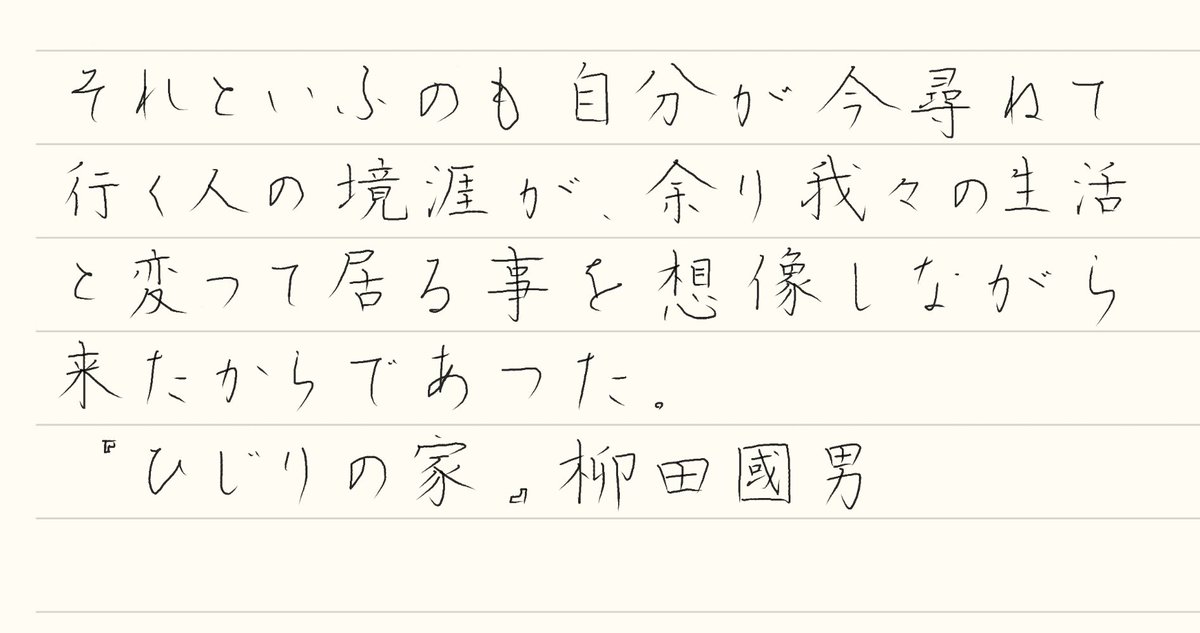 それといふのも自分が今尋ねて
行く人の境涯が、余り我々の生活
と変つて居る事を想像しながら
来たからであつた。
『ひじりの家』柳田國男